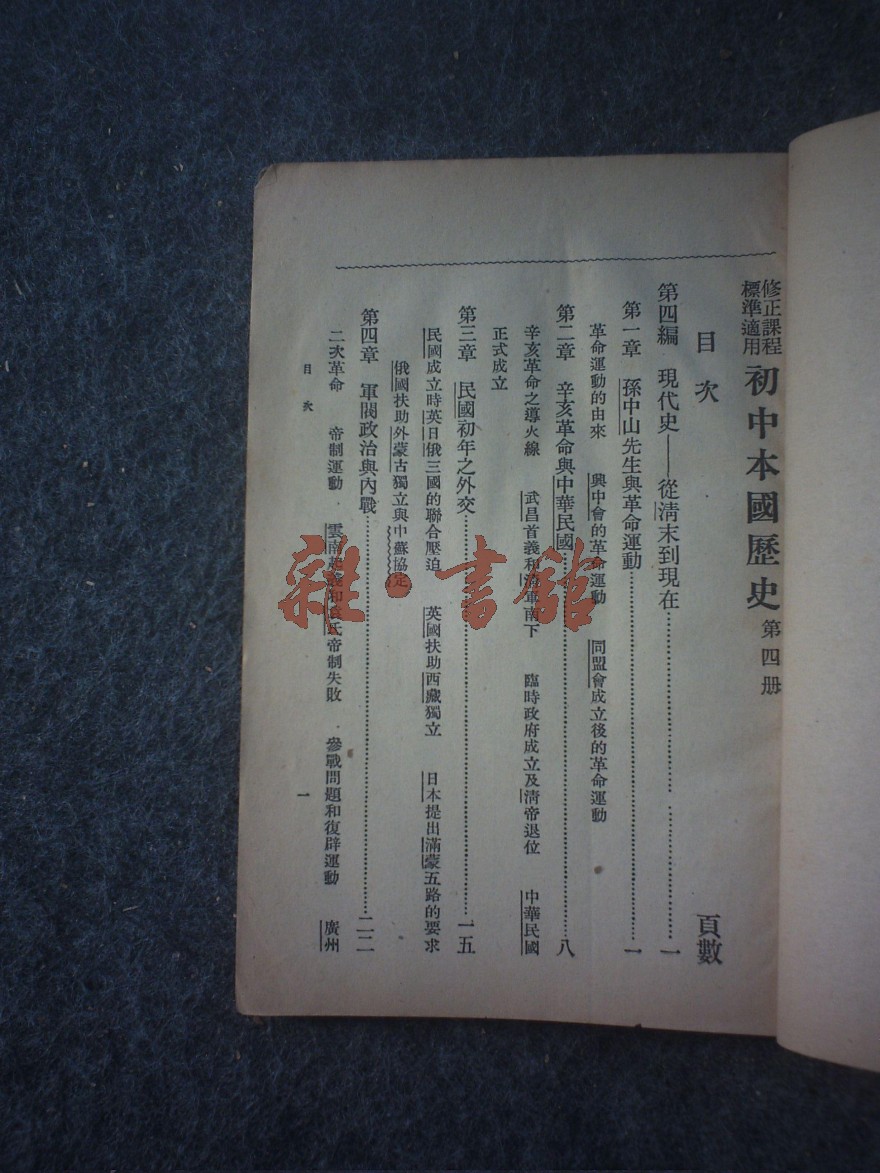 修正課程
標準適用
初中本國歷史 第四册
目次
頁數
第四編 現代史——從清末到現在……………一
第一章 孫中山先生與革命運動……………一
革命運動的由來 興中會的革命運動 同盟會成立後的革命運動
第二章 辛亥革命與中華民國……………八
辛亥革命之導火線 武昌首義和清軍南下 臨時政府成立及清帝退位 中華民國
正式成立
第三章 民國初年之外交……………一五
民國成立時英日俄三國的聯合壓迫 英國扶助西藏獨立 日本提出滿蒙五路的要求
俄國扶助外蒙古獨立與中蘇協定
第四章 軍閥政治與內戰……………二二
二次革命 帝制運動 雲南起義和袁氏帝制失敗 參戰問題和復辟運動 廣州
目次
一
雜·書館